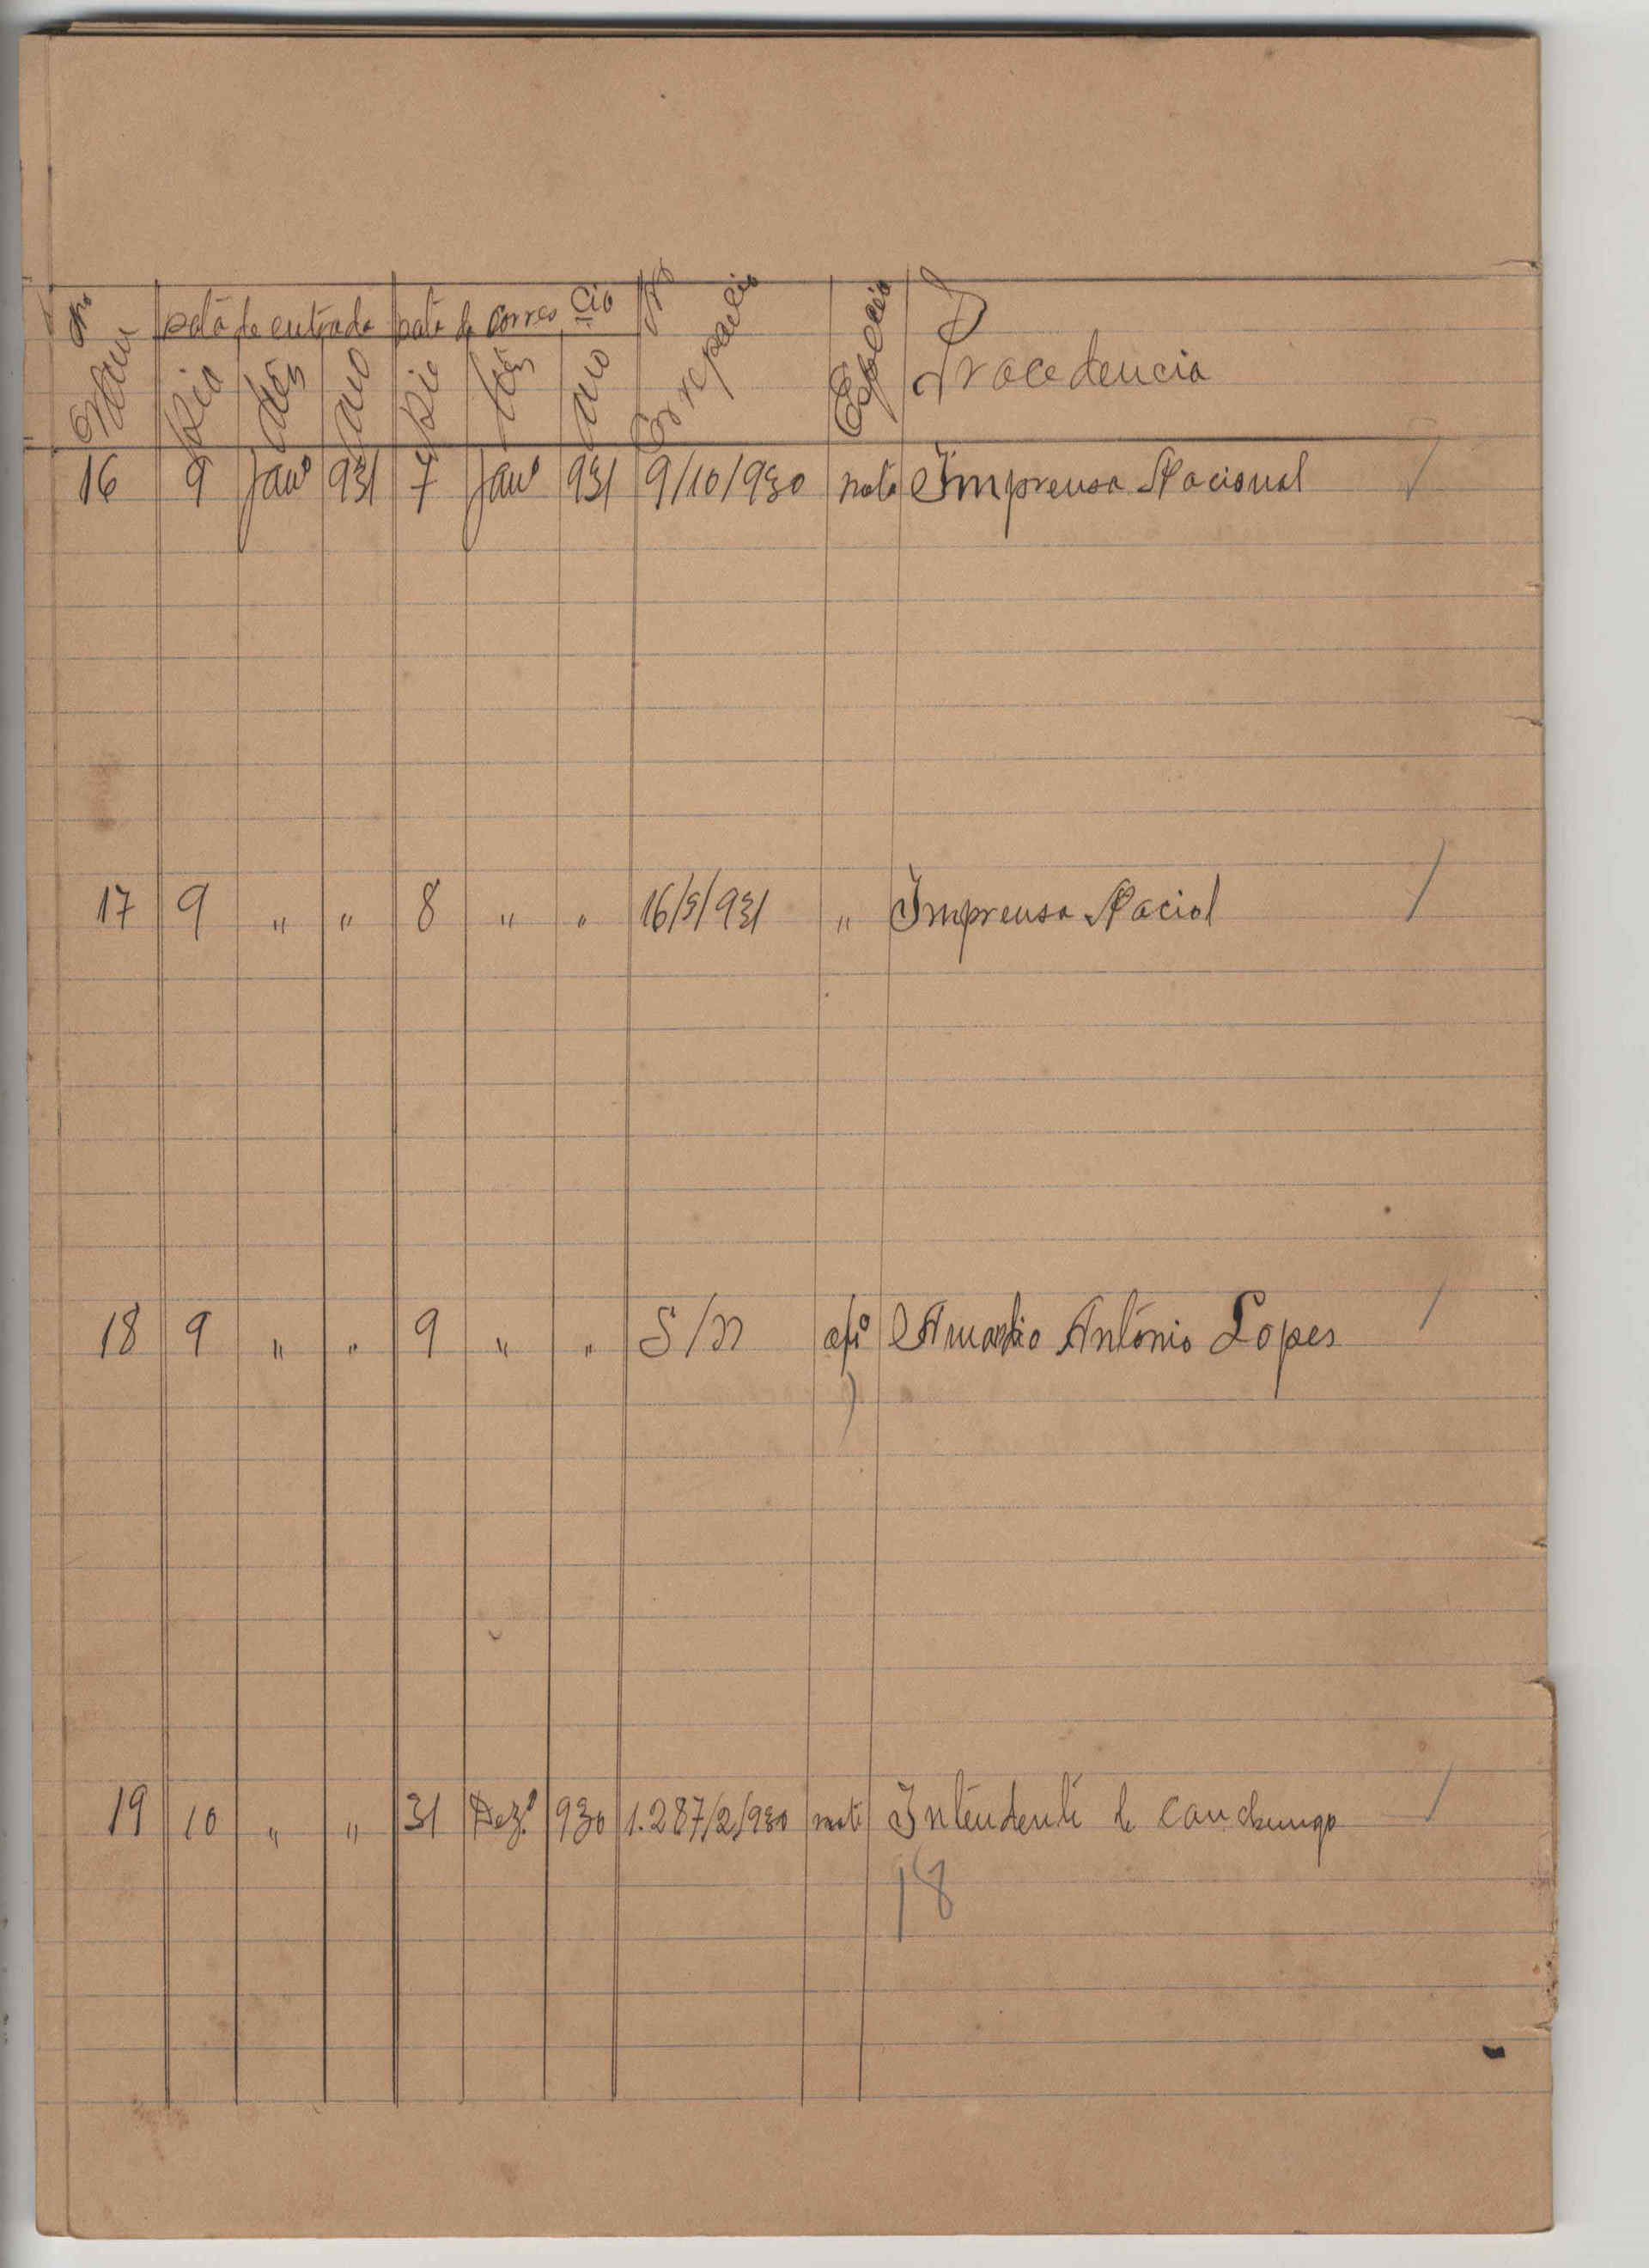 Nº Ordem Data de entrada Data de corres cia Nº Correpacia Especia Procedencia
Dia Mês Ano Dia Mês Ano
16 9 Janº 931 7 Janº 931 9/10/930 nota Imprensa Nacional
17 9 " " 8 " " 16/5/931 " Imprensa Naciol
18 9 " " 9 " " S/N António Lopes
19 10 " " 31 Dezº 930 1.287/2/930 nota Intendente de Canchungo
18